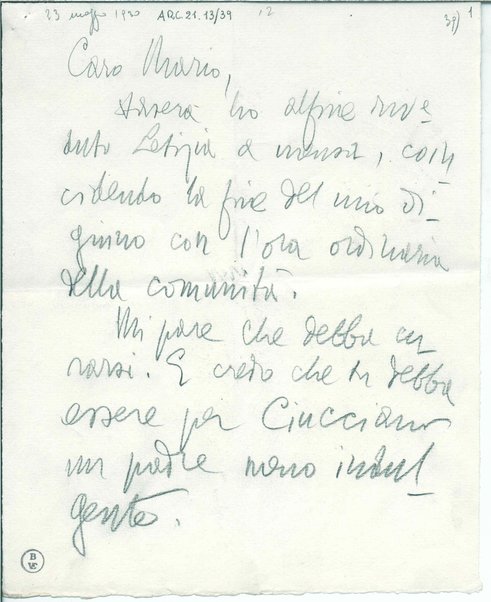 23 maggio 1930 A.R.C. 21. 13/39 12 39) 1
Caro Mario,
stasera ho alfine rive
duto Letizia a mensa, coin
cidendo la fine del mio di-
giuno con l'ora ordinaria
della comunità.
Mi pare che debba cu
rarsi. E credo che tu debba
essere per Ciucciano
un padre meno indul
gente.
B
VE